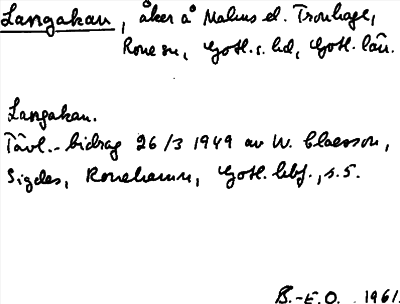 Langakau, åker å Malms el. Tronhage,
Rone sn, Gotl. s. hd, Gotl. län.
Langakau.
Tävl.-bidrag 26/3 1949 av W. Claesson,
Sigdes, Ronehamn, Gotl. hbf., s. 5.
B.-E.O. 1961.